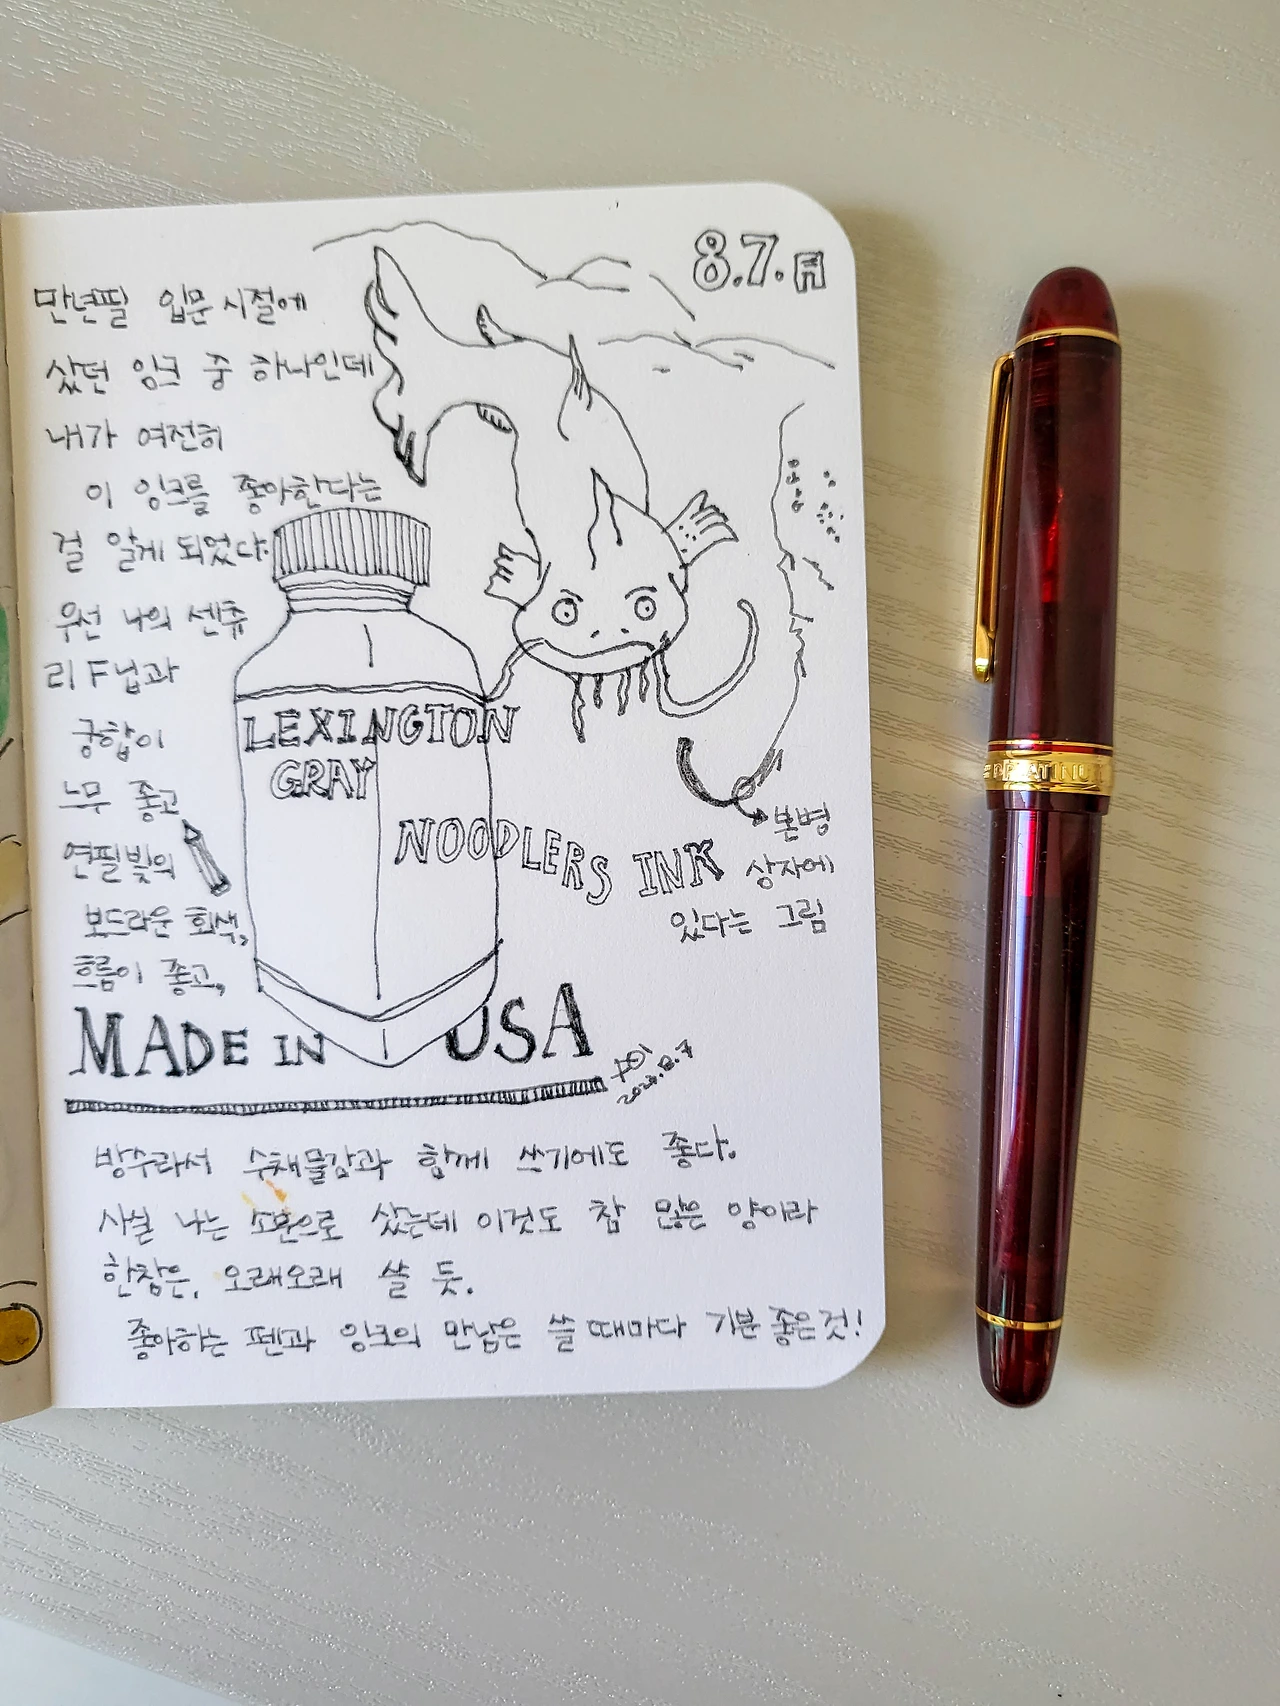 8.7.月
만년필 입문 시절에
샀던 잉크 중 하나인데
내가 여전히
이 잉크를 좋아한다는
걸 알게 되었다.
우선 나의 센츄
리 F닙과
궁합이
느무 좋고
연필빛의
보드라운 회색,
흐름이 좋고,
LEXINGTON
GRAY
NOODLERS INK
본병
상자에
있다는 그림
MADE IN USA
방수라서 수채물감과 함께 쓰기에도 좋다.
사실 나는 소분으로 샀는데 이것도 참 많은 양이라
한참은, 오래오래 쓸 듯.
좋아하는 펜과 잉크의 만남은 쓸 때마다 기분 좋은 것!
PLATINUM